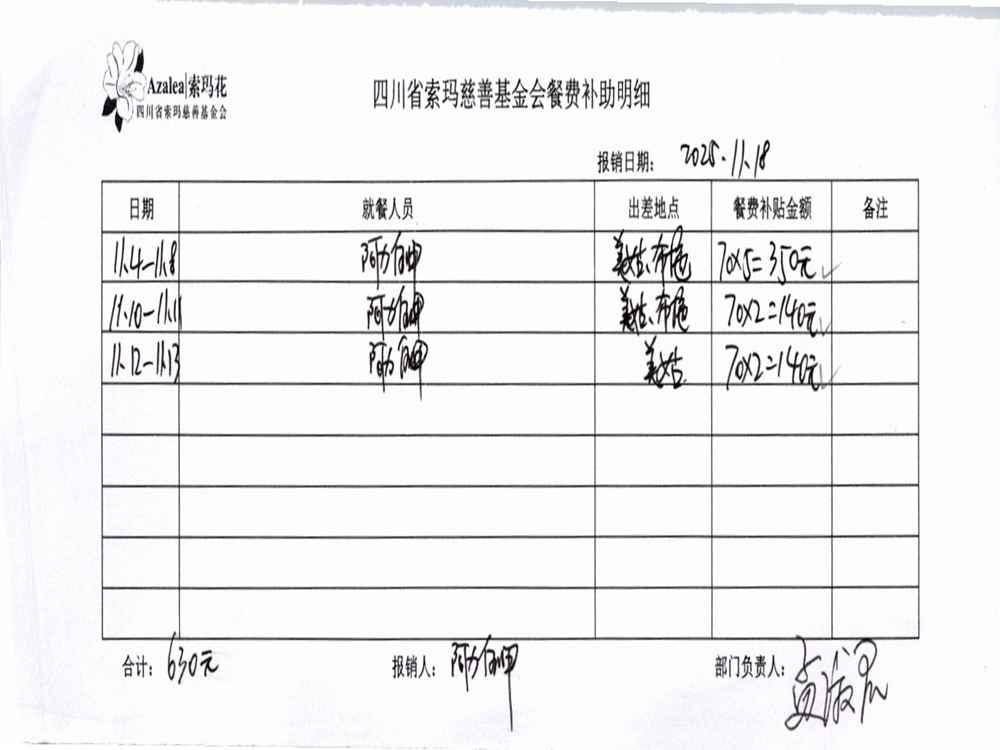 Azalea|索玛花
四川省索玛慈善基金会
四川省索玛慈善基金会餐费补助明细
报销日期： 2025.11.18
日期 就餐人员 出差地点 餐费补贴金额 备注
11.4-11.8 阿力 美姑、布拖 70×5=350元
11.10-11.11 阿力 美姑、布拖 70×2=140元
11.12-11.13 阿力 美姑 70×2=140元
合计： 630元 报销人： 阿力 部门负责人：